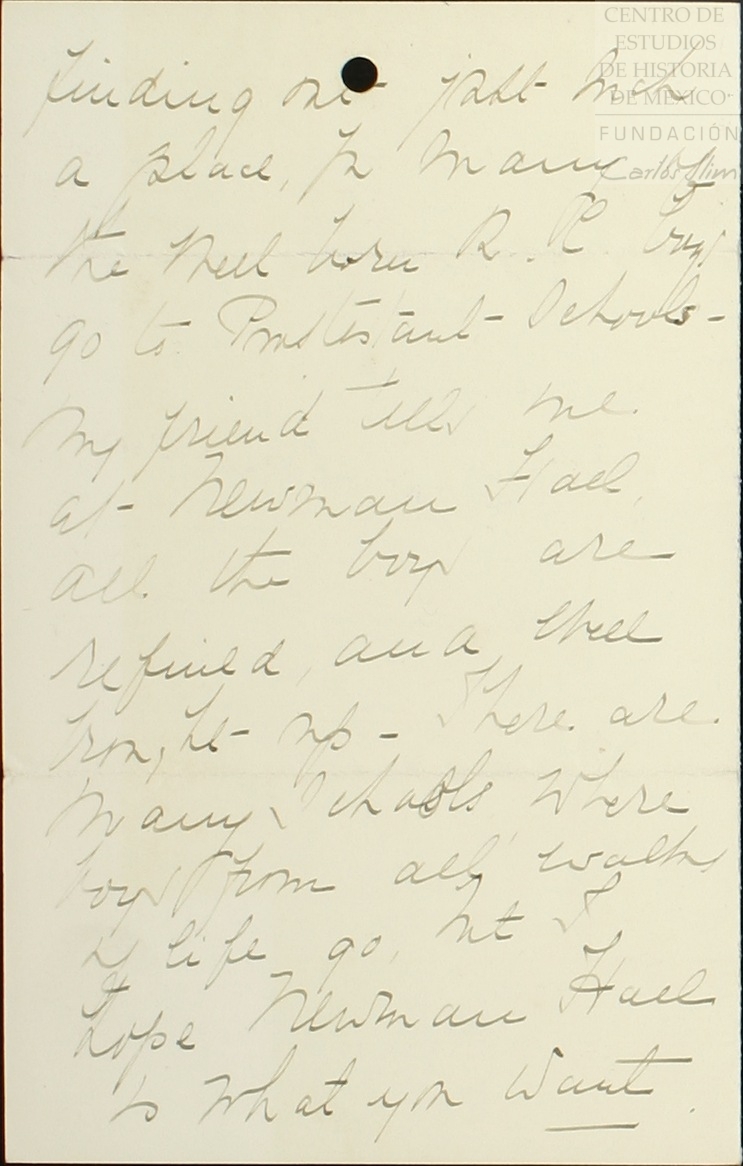 CENTRO DE
ESTUDIOS
DE HISTORIA
DE MÉXICO
FUNDACIÓN
Carlos Slim
finding out just such
a place, for many of
the well born R. C. boys
go to Protestant Schools -
My friend tells me
at Newman Hall,
all the boys are
refined, and well
brought up - There are
many Schools where
boys from all walks
of life go, but I
hope Newman Hall
is what you want.